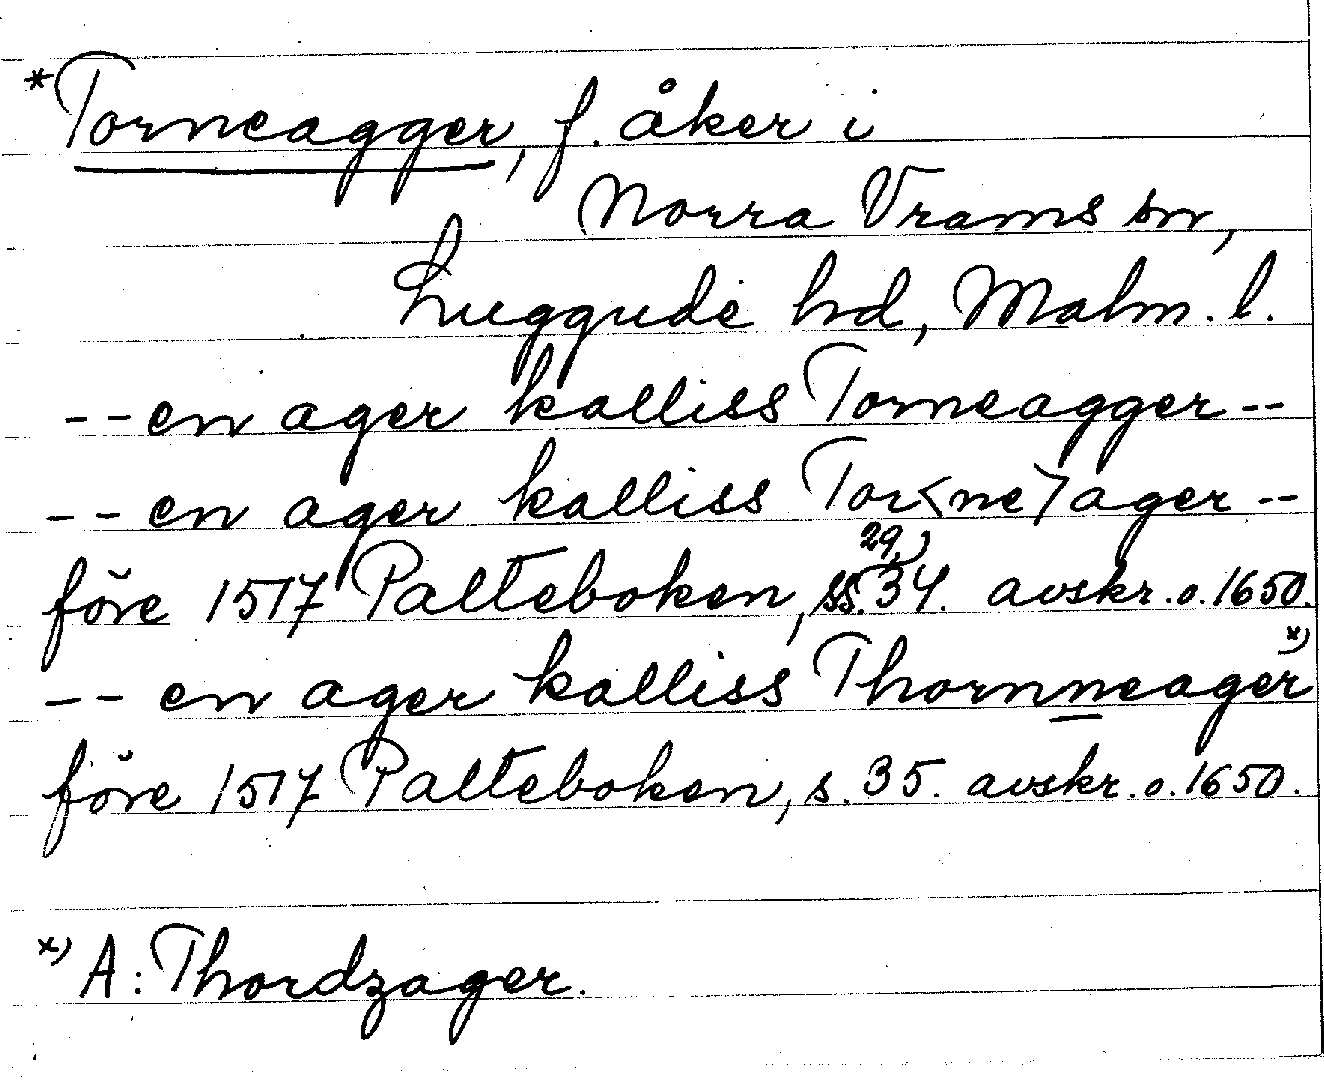 *Torneagger, f. åker i
Norra Vrams sn,
Luggude hd, Malm. l.
-- en ager kalliss Torneagger --
-- en ager kalliss Tor<ne>ager --
före 1517 Palteboken, ss. 29, 34. avskr. o. 1650.
-- en ager kalliss Thornneager x)
före 1517 Palteboken, s. 35. avskr. o. 1650.
x) A: Thordzager.